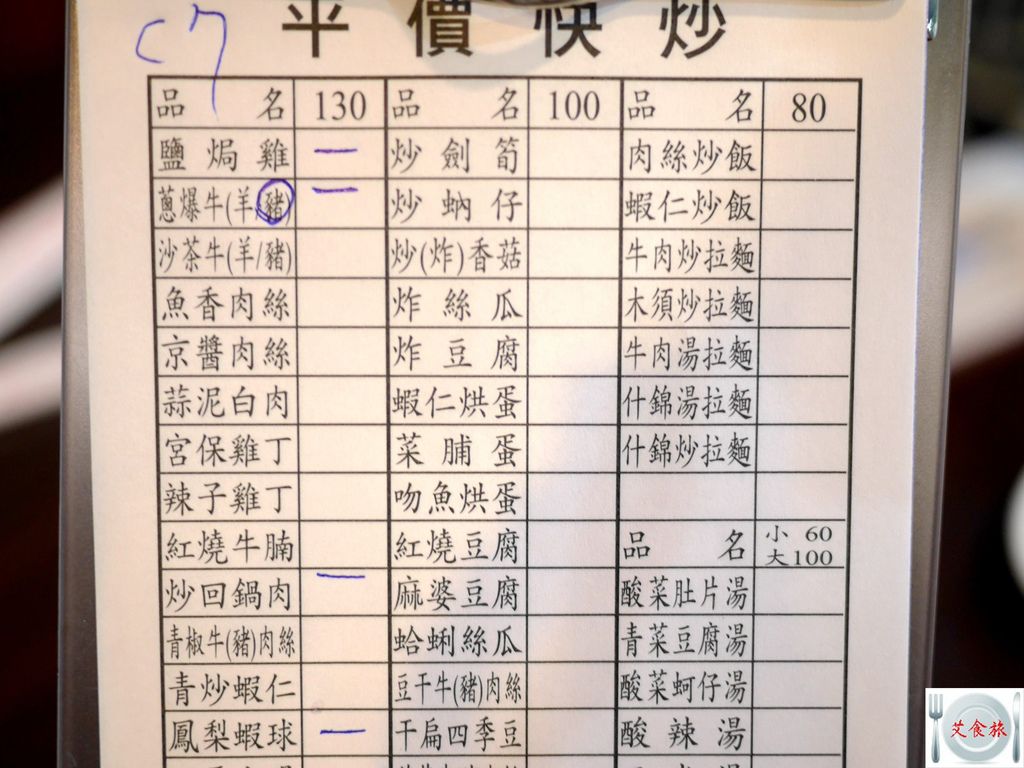 C7
平價快炒
品名 130 品名 100 品名 80
鹽焗雞 一 炒劍筍 肉絲炒飯
蔥爆牛(羊/豬) 一 炒蚋仔 蝦仁炒飯
沙茶牛(羊/豬) 炒(炸)香菇 牛肉炒拉麵
魚香肉絲 炸絲瓜 木須炒拉麵
京醬肉絲 炸豆腐 牛肉湯拉麵
蒜泥白肉 蝦仁烘蛋 什錦湯拉麵
宮保雞丁 菜脯蛋 什錦炒拉麵
辣子雞丁 吻魚烘蛋
紅燒牛腩 紅燒豆腐 品名 小 60 大100
炒回鍋肉 一 麻婆豆腐 酸菜肚片湯
青椒牛(豬)肉絲 蛤蜊絲瓜 青菜豆腐湯
青炒蝦仁 豆干牛(豬)肉絲 酸菜蚵仔湯
鳳梨蝦球 一 干扁四季豆 酸辣湯
艾食旅